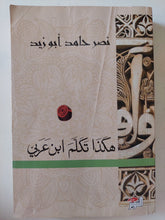 نصر حامد أبو زيد
هكذا تكلم ابن عربي